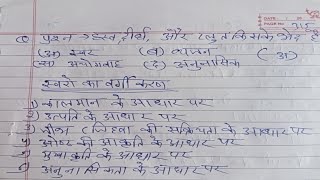 Q प्रश्न ह्रस्व, दीर्घ, और प्लुत किसके भेद है
(अ) स्वर (ब) व्यंजन (अ)
(स) अयोगवाह (द) अनुनासिक
स्वरो का वर्गीकरण
1) कालमान के आधार पर
2) उत्पति के आधार पर
3) जीभ (जिह्वा) की सक्रियता के आधार पर
4) ओष्ठ की आकृति के आधार पर
5) मुखाकृति के आधार पर
6) अनुनासिकता के आधार पर